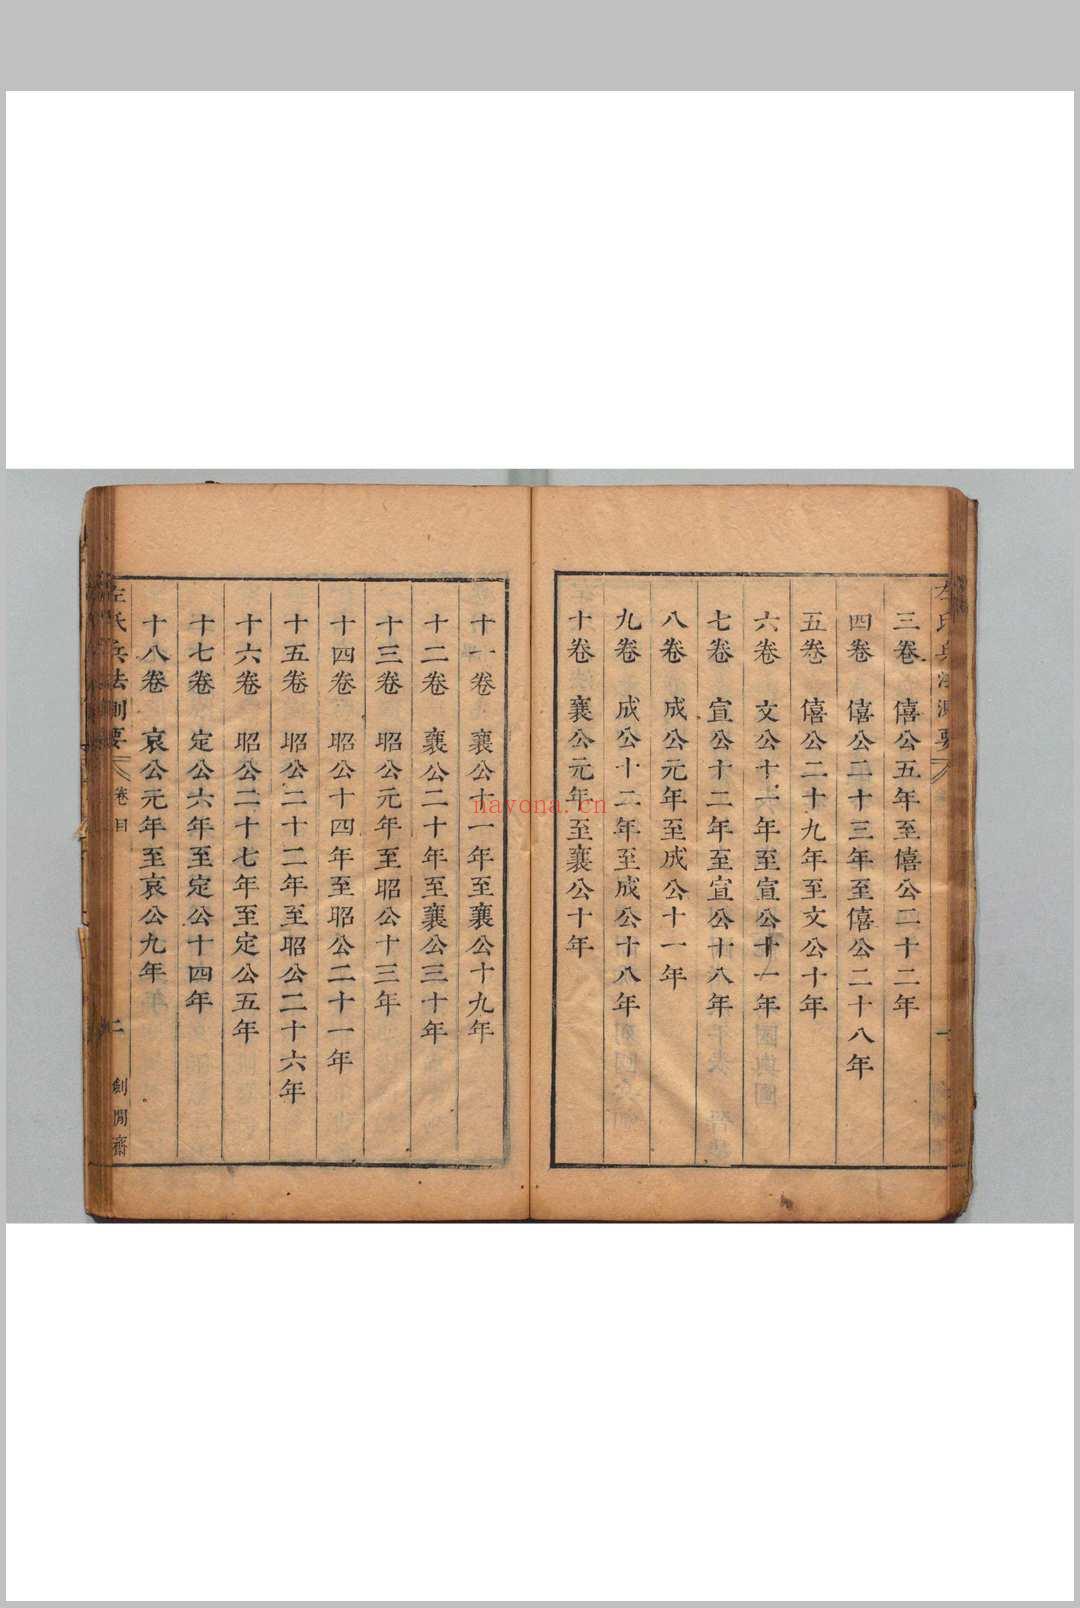 左氏兵法測要 一
三卷 僖公五年至僖公二十二年
四卷 僖公二十三年至僖公二十八年
五卷 僖公二十九年至文公十年
六卷 文公十一年至宣公十一年
七卷 宣公十二年至宣公十八年
八卷 成公元年至成公十一年
九卷 成公十二年至成公十八年
十卷 襄公元年至襄公十年
十一卷 襄公十一年至襄公十九年
十二卷 襄公二十年至襄公三十年
十三卷 昭公元年至昭公十三年
十四卷 昭公十四年至昭公二十一年
十五卷 昭公二十二年至昭公二十六年
十六卷 昭公二十七年至定公五年
十七卷 定公六年至定公十四年
十八卷 哀公元年至哀公九年
左氏兵法測要 卷目 二 劍閒齋
nayona.cn